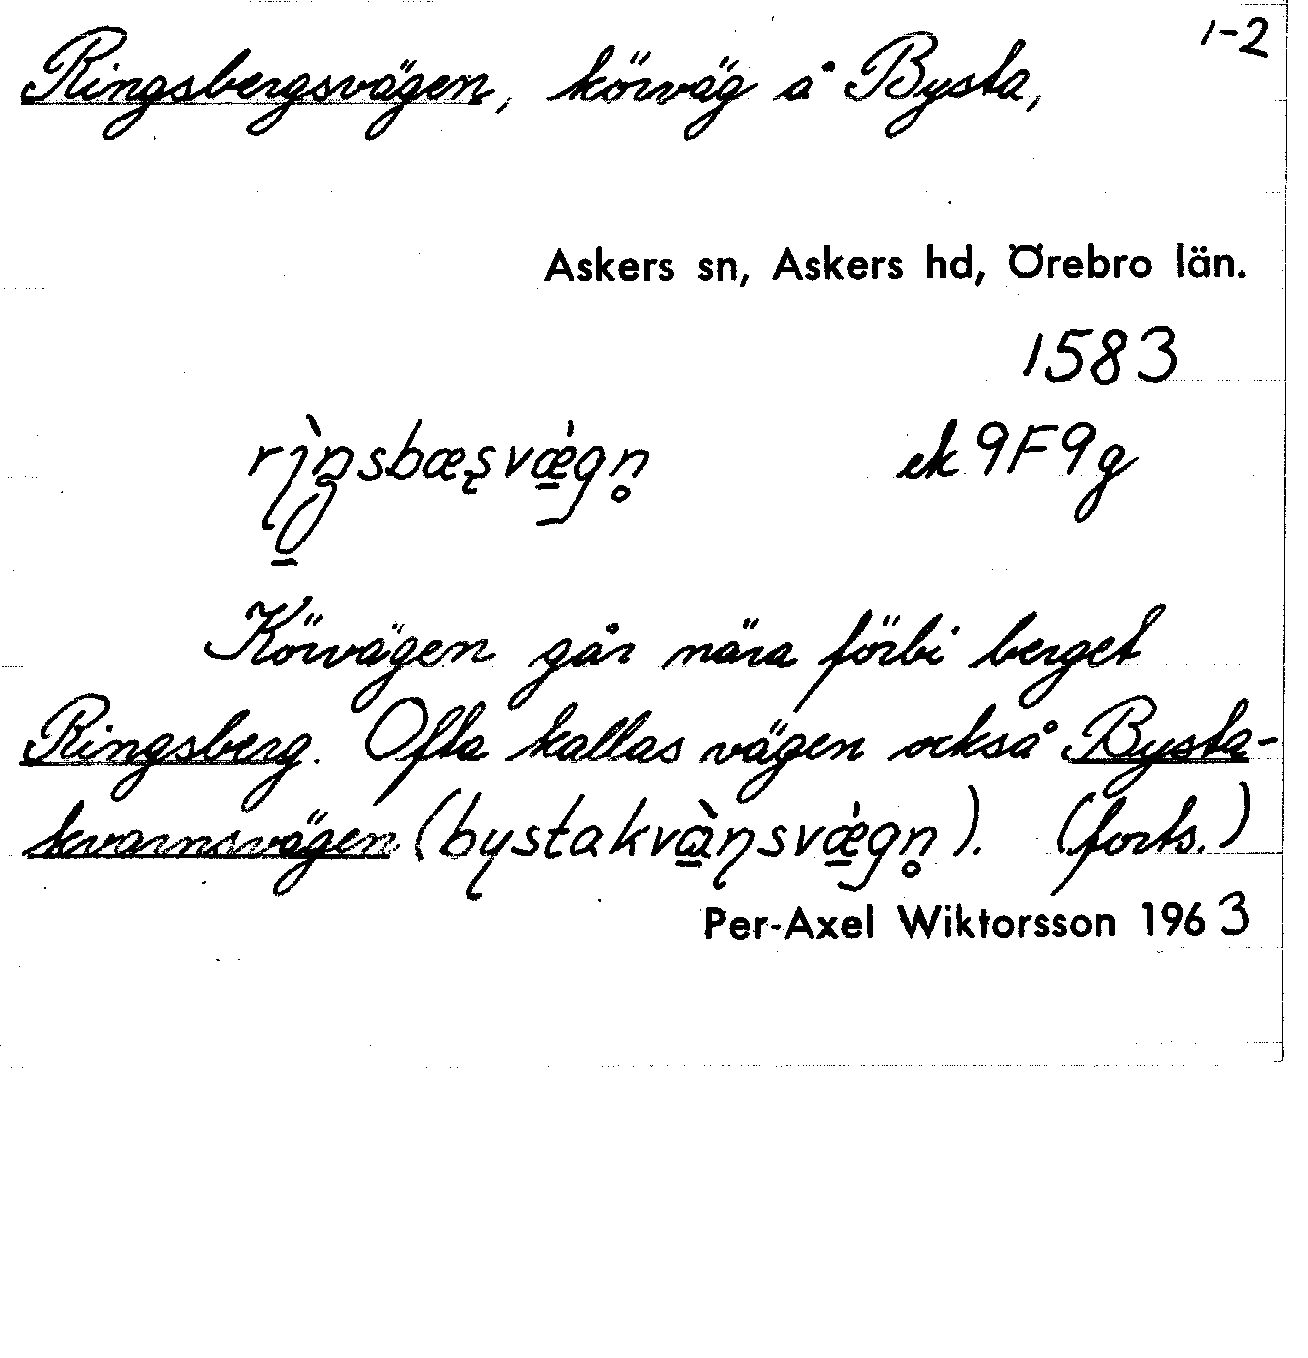 1-2
Ringsbergsvägen, körväg å Bysta,
Askers sn, Askers hd, Örebro län.
1583
ek 9F9g
Körvägen går nära förbi berget
Ringsberg. Ofta kallas vägen också Bysta-
kvarnsvägen (bystakvà̱ɳsvǽ̱gn̥). (forts.)
Per-Axel Wiktorsson 1963